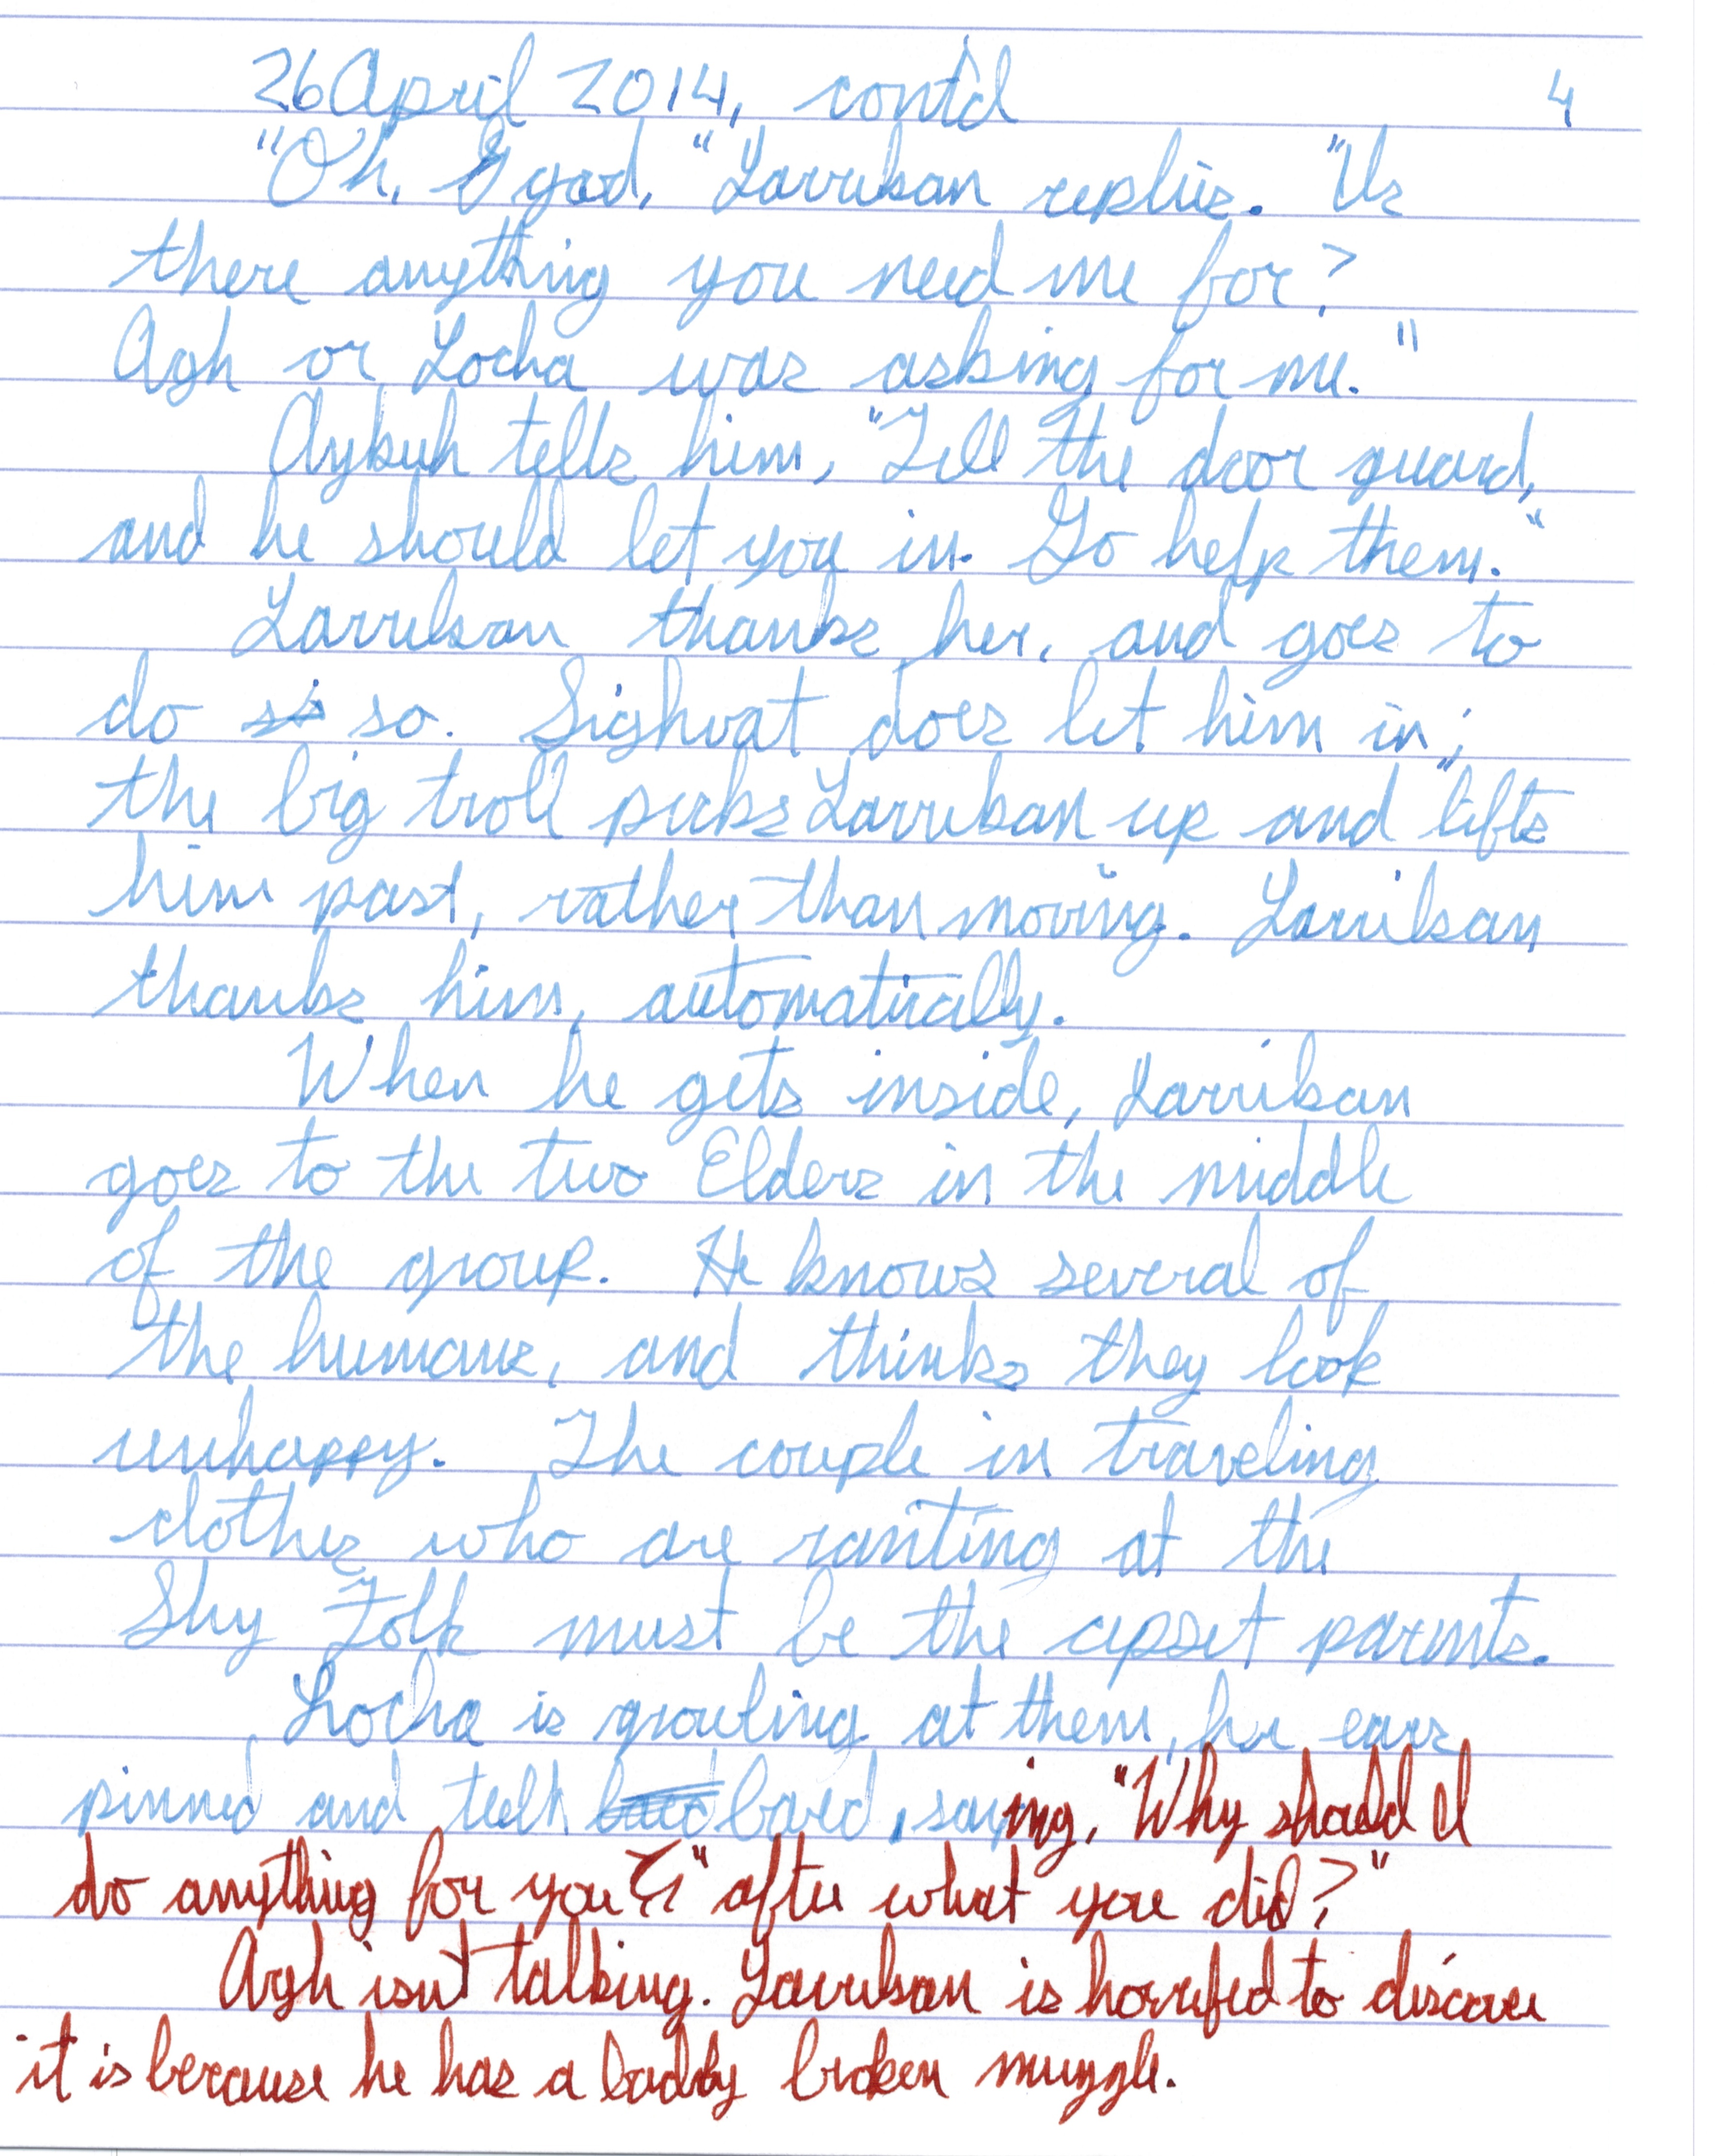 26 April 2014, cont'd 4
"Oh, I god," Larrikan replies. "Is
there anything you need me for?
Agh or Locha was asking for me."
Aykuh tells him, "Tell the door guard,
and he should let you in. Go help them."
Larrikan thanks her, and goes to
do so. Sighvat does let him in;
the big troll picks Larrikan up and "lifts
him past, rather than moving. Larrikan
thanks him, automatically.
When he gets inside, Larrikan
goes to the two Elders in the middle
of the group. He knows several of
the humans, and thinks they look
unhappy. The couple in traveling
clothes who are ranting at the
Shy Folk must be the upset parents.
Locha is growling at them, her ears
pinned and teeth bared, saying, "Why should I
do anything for you" after what you did?"
Agh isn't talking. Larrikan is horrified to discover
it is because he has a badly broken muzzle.